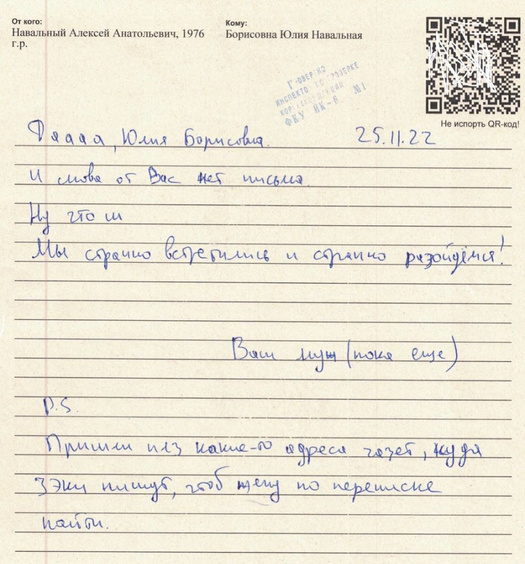 От кого:
Навальный Алексей Анатольевич, 1976
г.р.
Кому:
Борисовна Юлия Навальная
ФКУ ИК-6 №1
Не испорть QR-код!
Дааaa, Юлия Борисовна.
25.11.22
И снова от Вас нет письма.
Ну что ш
Мы странно встретились и странно разойдёмся!
Ваш муж (пока ещё)
P.S.
Пришли плз какие-то адреса газет, куда
зэки пишут, чтоб жену по переписке
найти.